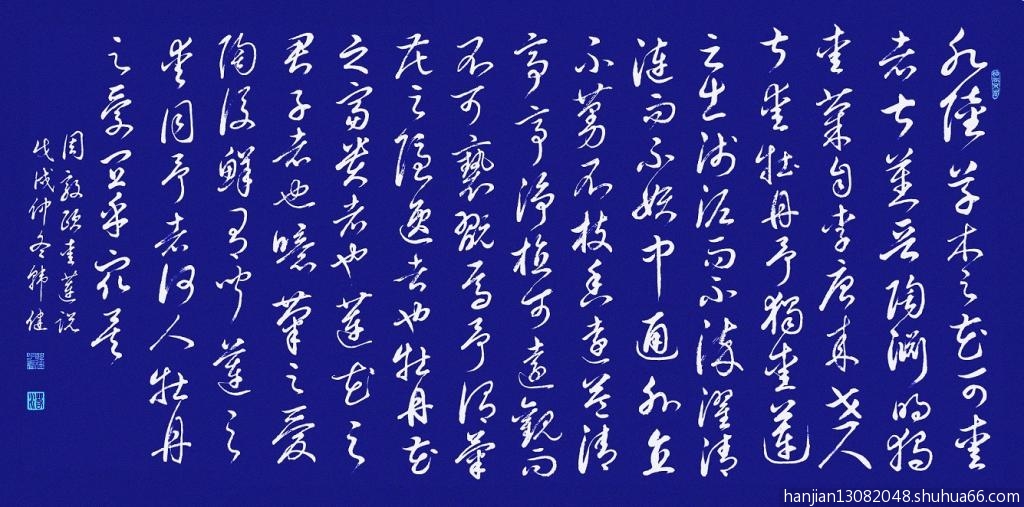 水陸草木之花可愛
者甚蕃晉陶淵明獨
愛菊自李唐來世人
甚愛牡丹予獨愛蓮
之出淤泥而不染濯清
漣而不妖中通外直
不蔓不枝香遠益清
亭亭淨植可遠觀而
不可褻翫焉予謂菊
花之隱逸者也牡丹花
之富貴者也蓮花之
君子者也噫菊之愛
陶後鮮有聞蓮之
愛同予者何人牡丹
之愛宜乎眾矣
周敦頤愛蓮說
戊戌仲冬韓健
hanjian13082048.shuhua66.com